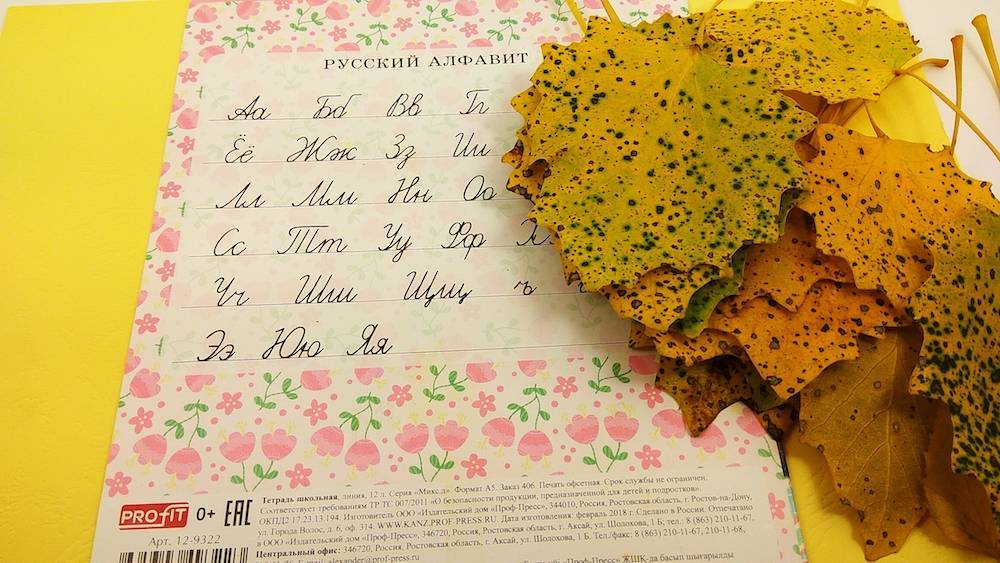 РУССКИЙ АЛФАВИТ
Аа Бб Вв Гг
Ёё Жж Зз Ии
Лл Мм Нн Оо
Сс Тт Уу Фф Х
Чч Шш Щщ ъ
Ээ Юю Яя
Тетрадь школьная, линия, 12 л. Серия «Микс.д». Формат А5. Печать офсетная. Заказ 406. Срок службы не ограничен.
Соответствует требованиям ТР ТС 007/2011 «О безопасности продукции, предназначенной для детей и подростков».
ОКПД2 17.23.13.194 Изготовитель ООО «Издательский дом «Проф-Пресс», 344010, Россия, Ростовская область, г. Ростов-на-Дону,
ул. Города Волос, д. 6, оф. 314. WWW.KANZ.PROF-PRESS.RU. Дата изготовления: февраль 2018 г. Сделано в России. Отпечатано
в ООО «Издательский дом «Проф-Пресс», 346720, Россия, Ростовская область, г. Аксай, ул. Шолохова, 1 Б; тел.: 8 (863) 210-11-67.
Центральный офис: 346720, Россия, Ростовская область, г. Аксай, ул. Шолохова, 1 Б. Тел./факс: 8 (863) 210-11-67, 210-11-68,
E-mail: alexander@prof-press.ru «Проф-Пресс» ЖШҚ-да басып шығарылды
PROFIT 0+ ЕАС
Арт. 12-9322